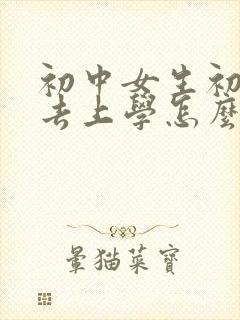 初中女生初
去上學怎麼
暈猫菜寶